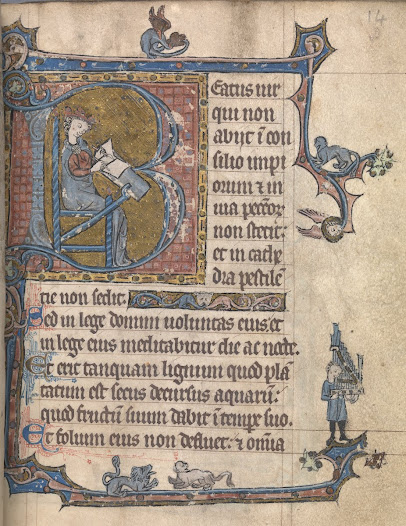 14
Beatus uir
qui non
abijt ĩ con
silio impi
orum ⁊ in
uia peccõꝝ
non stetit:
et in cathe
dra pestilẽ
tie non sedit.
Sed in lege domini uoluntas eius et
in lege eius meditabitur die ac nocte.
Et erit tanquam lignum quod pla
tatum est secus decursus aquarũ:
quod fructũ suum dabit ĩ tempr̃e suo.
Et folium eius non defluet: ⁊ omĩa